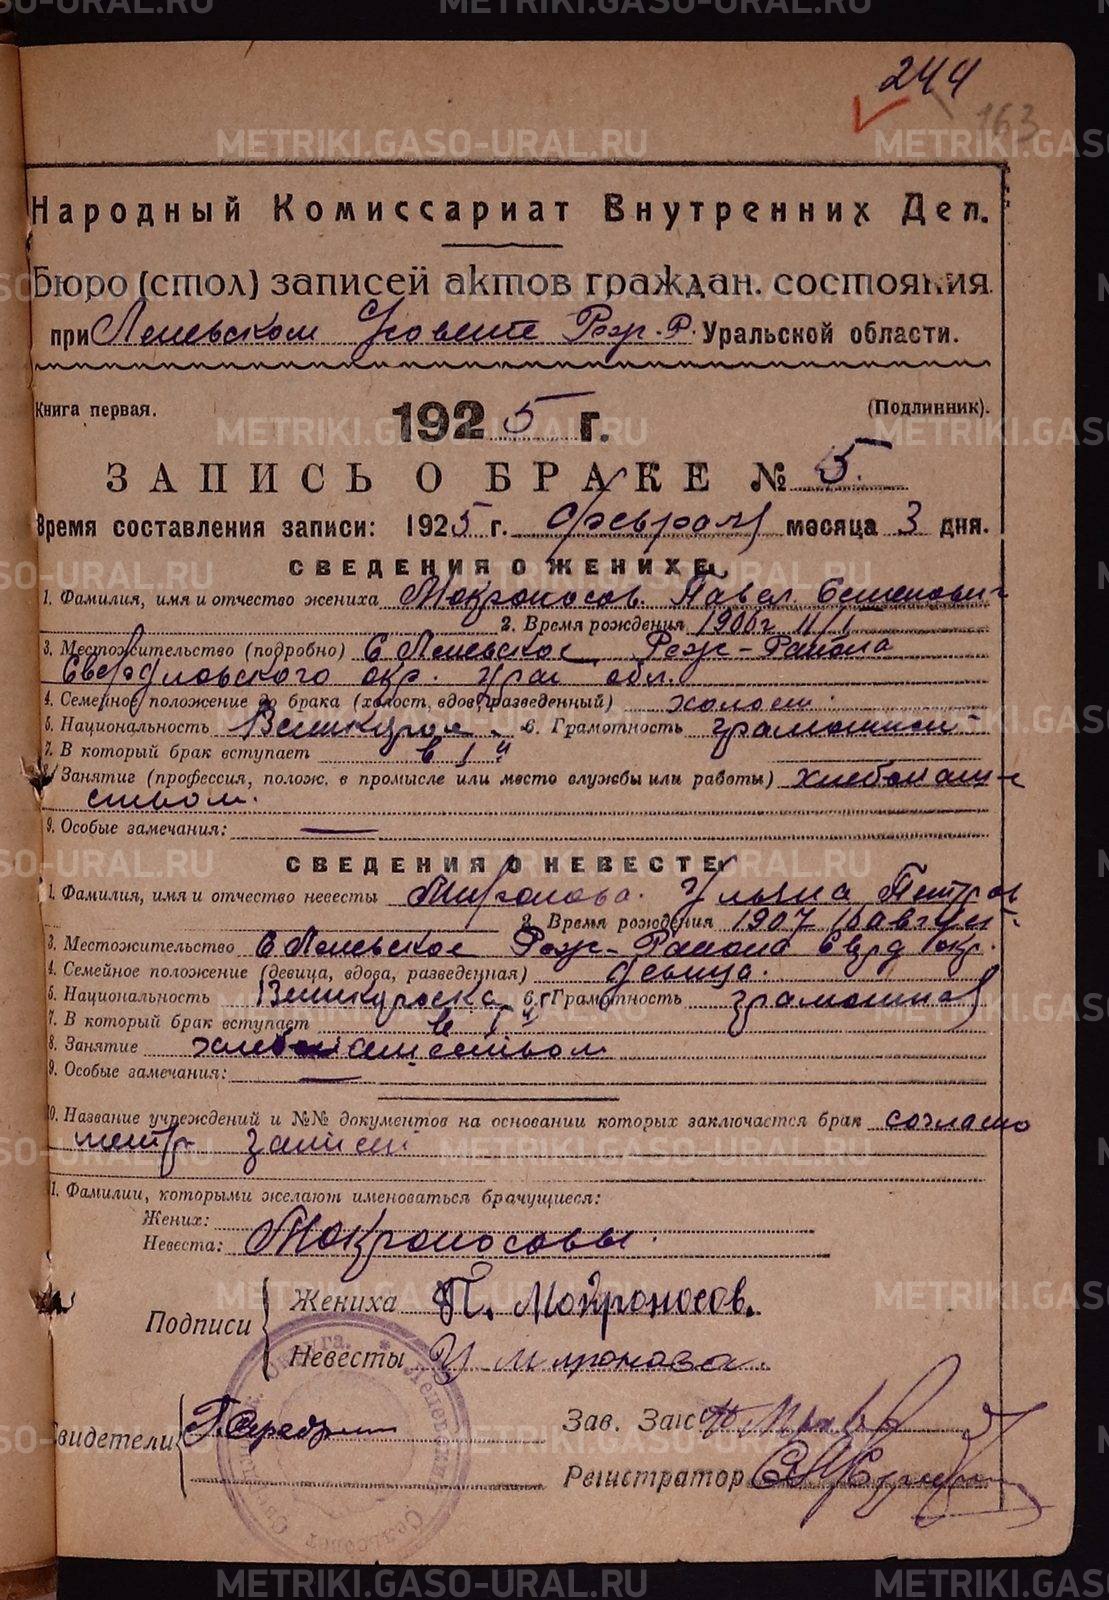 244
163
Народный Комиссариат Внутренних Дел.
Бюро (стол) записей актов граждан. состояния
при Леневском Совете Реж. Р. Уральской области.
Книга первая. 1925 г. (Подлинник).
ЗАПИСЬ О БРАКЕ № 5.
Время составления записи: 1925 г. февраля месяца 3 дня.
СВЕДЕНИЯ О ЖЕНИХЕ
1. Фамилия, имя и отчество жениха Мокроносов Павел Семенович
2. Время рождения 1906 г 11/I
3. Местожительство (подробно) С Леневское Реж-Района
Свердловского окр. Урал обл.
4. Семейное положение до брака (холост, вдов, разведенный) холост
5. Национальность Великорос. 6. Грамотность грамотный
7. В который брак вступает в I й
8. Занятие (профессия, полож. в промысле или место службы или работы) хлебопаш-
ством.
9. Особые замечания: —
СВЕДЕНИЯ О НЕВЕСТЕ
1. Фамилия, имя и отчество невесты Миронова Ульяна Петров
2. Время рождения 1907 16 август
3. Местожительство С Леневское Реж-Района Сврд окр.
4. Семейное положение (девица, вдова, разведенная) девица.
5. Национальность Великороска 6. Грамотность грамотная
7. В который брак вступает в I й
8. Занятие хлебопашеством
9. Особые замечания: —
10. Название учреждений и №№ документов на основании которых заключается брак согласно
метр записи
11. Фамилии, которыми желают именоваться брачущиеся:
Жених:
Невеста: Мокроносовы.
Подписи
Жениха П. Мокроносов.
Невесты У Миронова.
Свидетели
Зав. Загс
Регистратор
METRIKI.GASO-URAL.RU